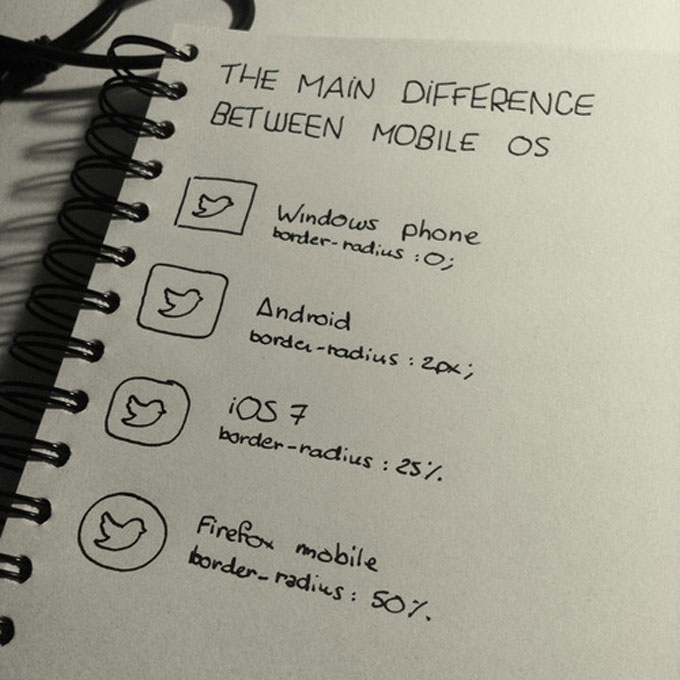 THE MAIN DIFFERENCE
BETWEEN MOBILE OS
Windows phone
border-radius : 0;
Android
border-radius : 2px;
iOS 7
border-radius : 25%.
Firefox mobile
border-radius : 50%.